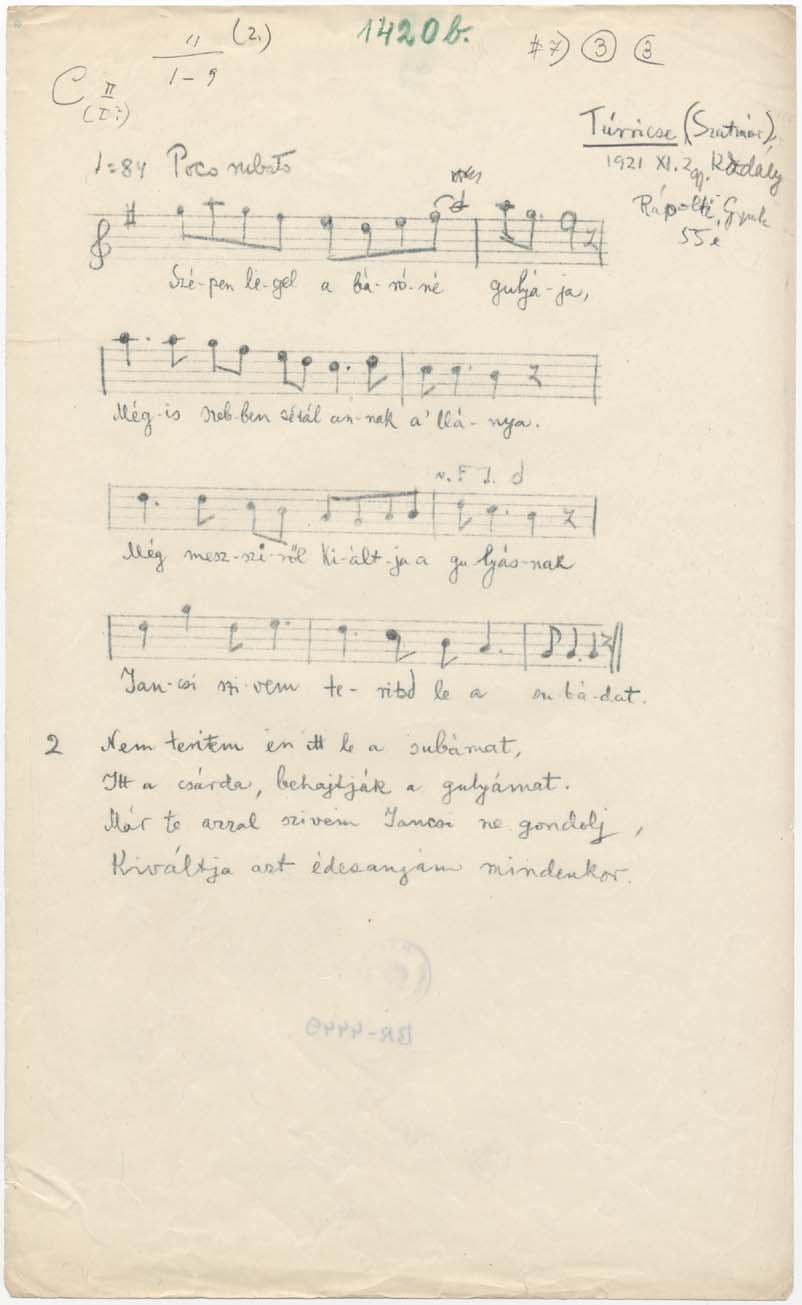 11 (2.) 1420b. #7) ③ 3
1-9
C II
(I?)
Túrricse (Szatmár)
♩=84 Poco rubato 1921 XI. 2 Kodály
55 é
Szé-pen le-gel a bá-ró-né gulyá-ja,
Még-is szeb-ben sétál an-nak a' llá-nya.
Még mesz-szi-ről ki-ált-ja a gu-lyás-nak
Jan-csi szi-vem te-ritsd le a su-bá-dat.
2 Nem teritem én itt le a subámat,
Itt a csárda, behajtják a gulyámat.
Már te azzal szivem Jancsi ne gondolj,
Kiváltja azt édesanyám mindenkor.
BR-4440